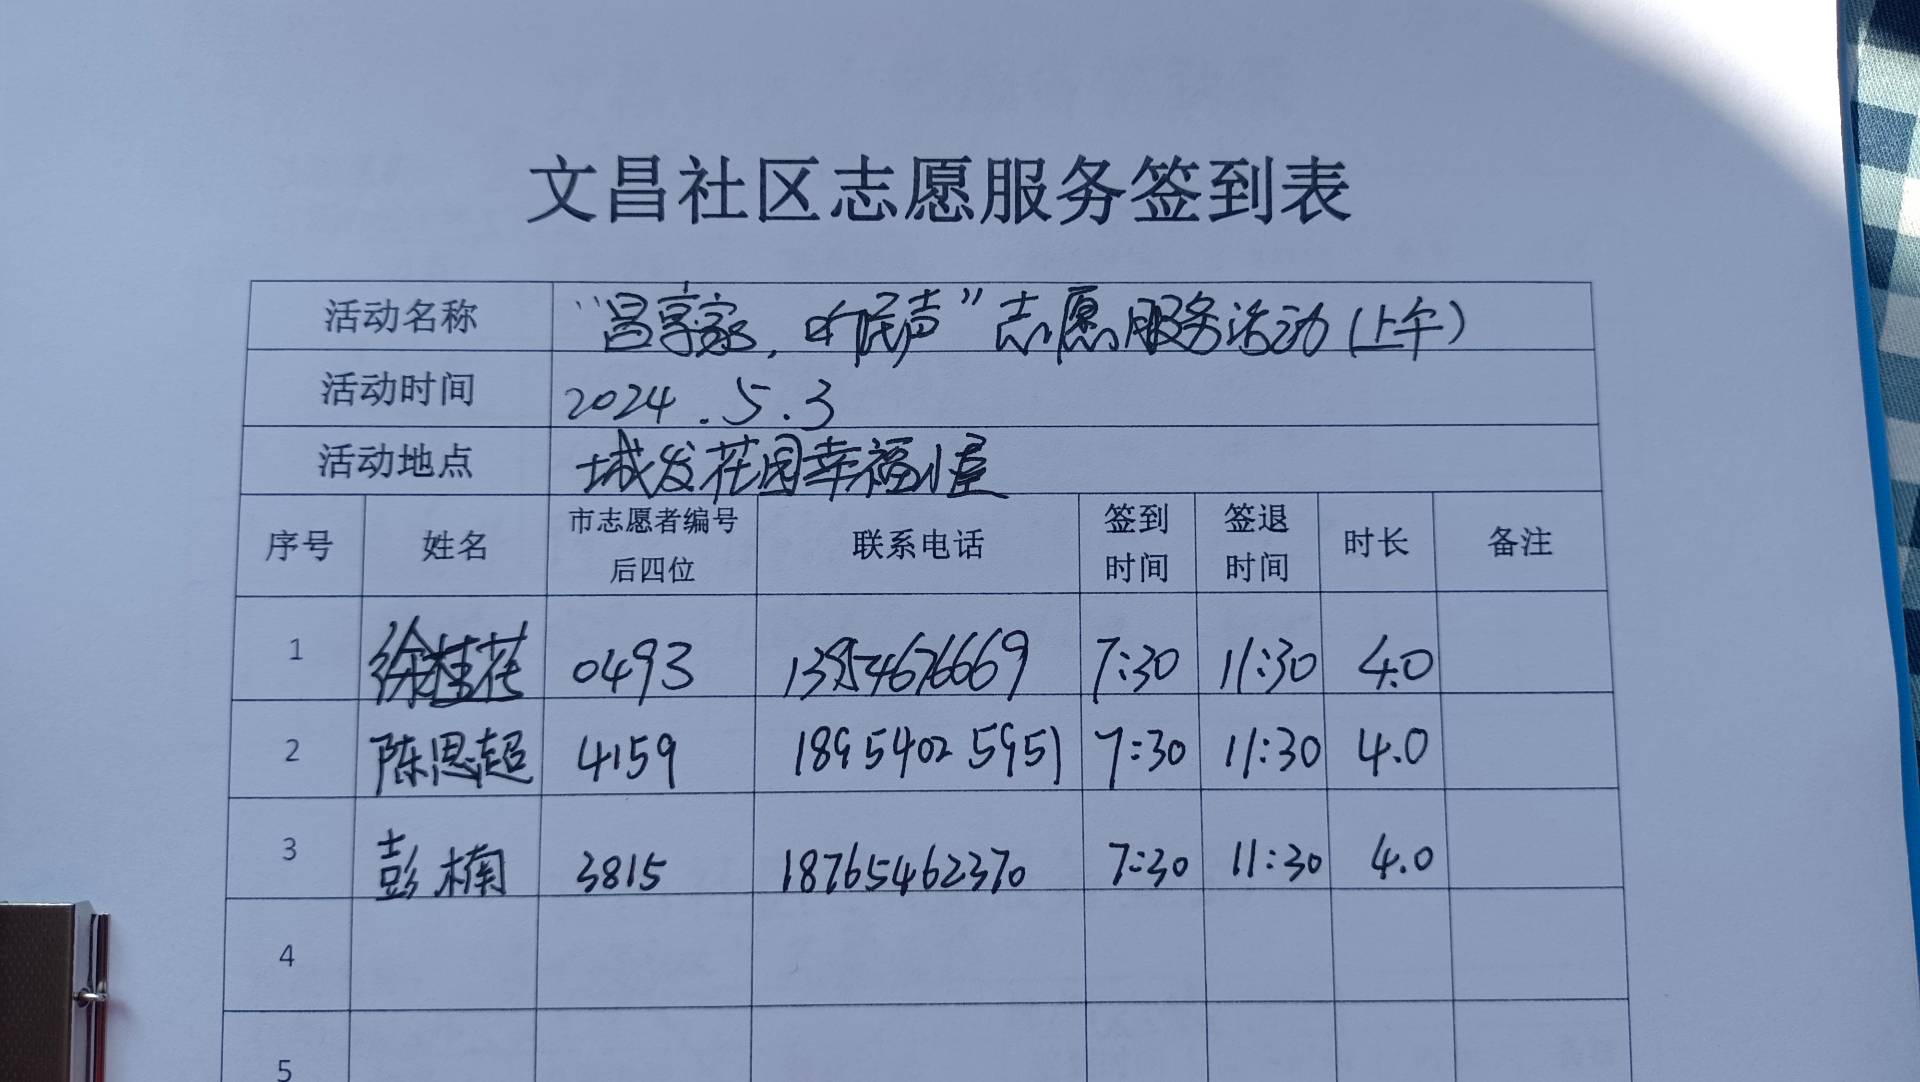 文昌社区志愿服务签到表
活动名称 “昌享家,听民声”志愿服务活动(上午)
活动时间 2024.5.3
活动地点 城发花园幸福小屋
序号 姓名 市志愿者编号后四位 联系电话 签到时间 签退时间 时长 备注
1 徐桂花 0493 13954676669 7:30 11:30 4.0
2 陈思超 4159 18954025951 7:30 11:30 4.0
3 彭楠 3815 18765462370 7:30 11:30 4.0
4
5